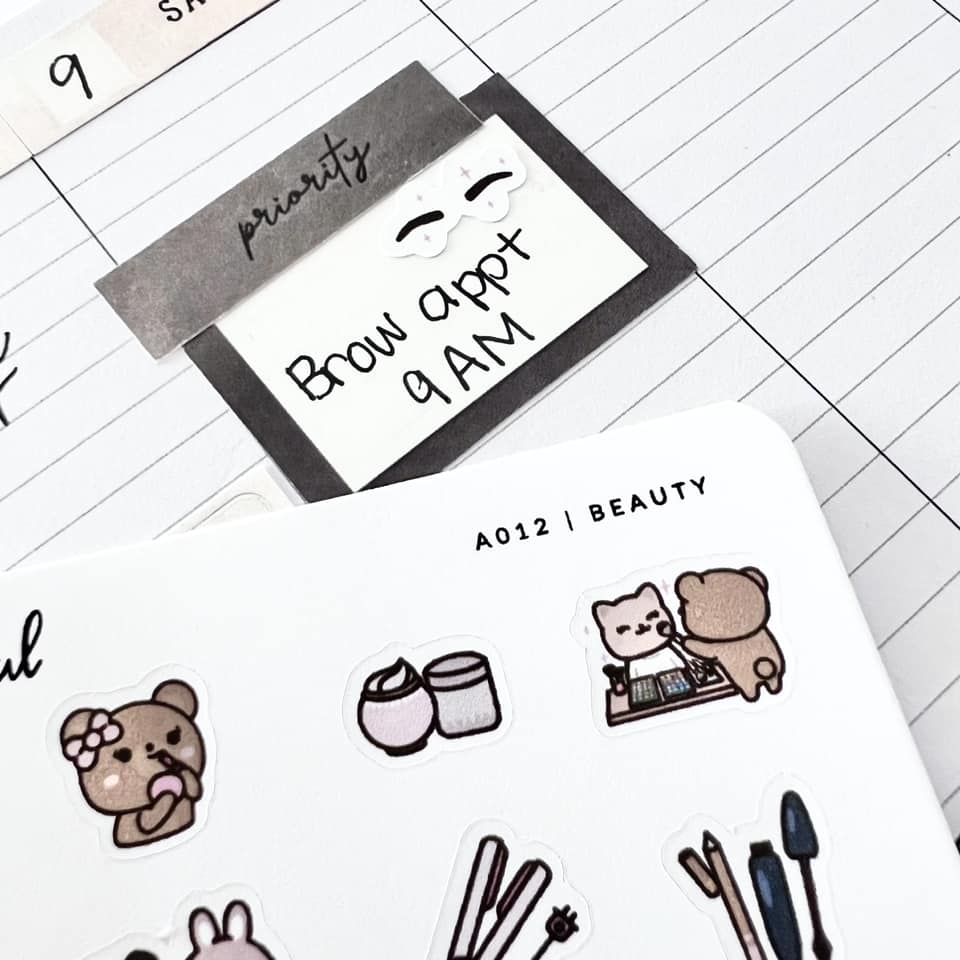 9
SA
priority
Brow appt
9 AM
A012 | BEAUTY